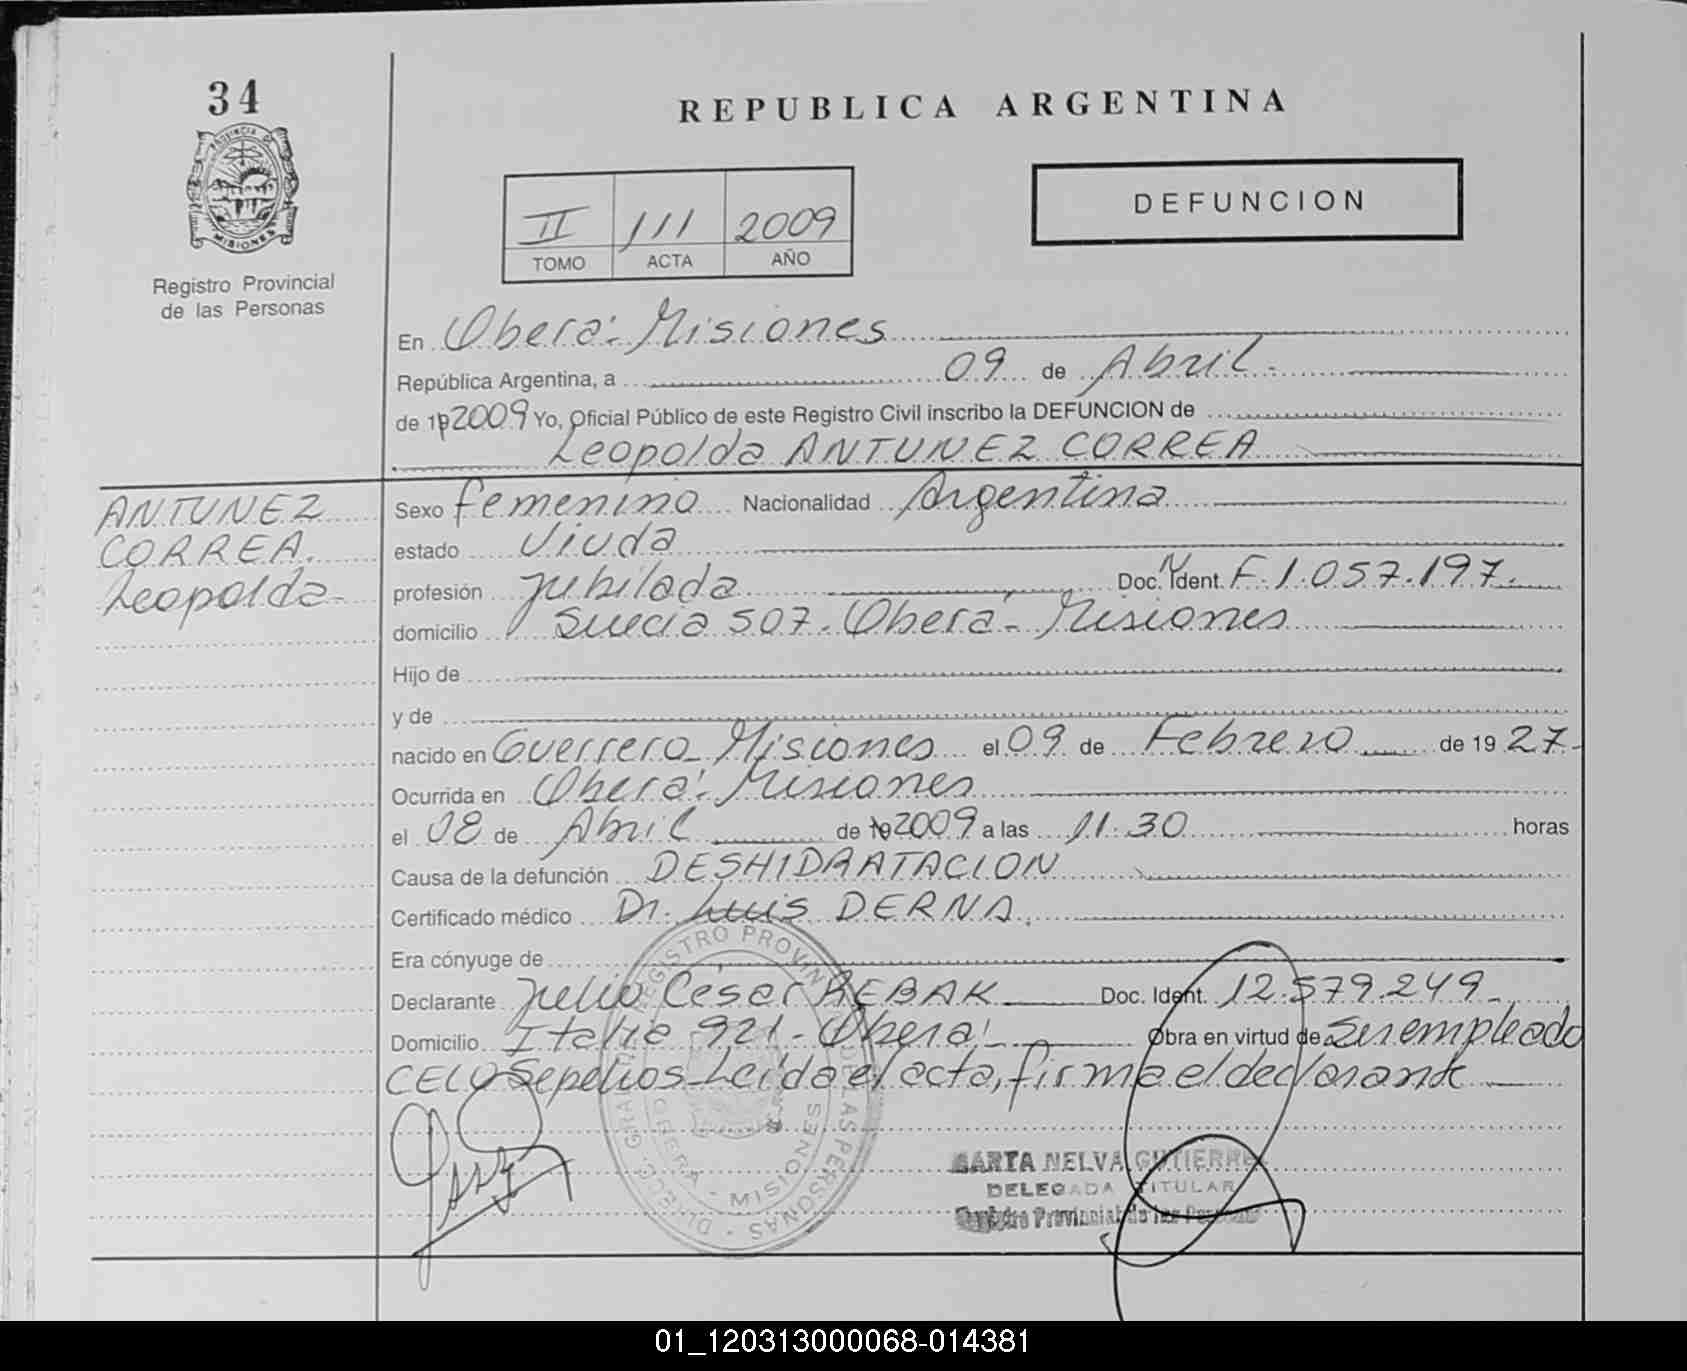 34
REPUBLICA ARGENTINA
PROVINCIA DE
MISIONES
Registro Provincial
de las Personas
DEFUNCION
II 111 2009
TOMO ACTA AÑO
En Oberá - Misiones
República Argentina, a 09 de Abril -
de 19 2009 Yo, Oficial Público de este Registro Civil inscribo la DEFUNCION de
Leopolda ANTUNEZ CORREA
ANTUNEZ
CORREA.
Leopolda -
Sexo femenino Nacionalidad Argentina
estado Viuda
profesión jubilada Doc. Ident. F. 1.057.197.
domicilio Suecia 507 - Oberá - Misiones
Hijo de
y de
nacido en Guerrero - Misiones el 09 de Febrero de 19 27 -
Ocurrida en Oberá - Misiones
el 08 de Abril de 19 2009 a las 11.30 horas
Causa de la defunción DESHIDRATACION
Certificado médico Dr. Luis DERNA.
Era cónyuge de
Declarante Julio César REBAK Doc. Ident. 12.579.249 -
Domicilio Italia 921 - Oberá - Obra en virtud de Ser empleado
CELO Sepelios - Leída el acta, firma el declarante
REGISTRO PROVINCIAL DE LAS PERSONAS
OBERA - MISIONES
NELVA GUTIERREZ
DELEGADA TITULAR
Registro Provincial de las Personas
01_120313000068-014381